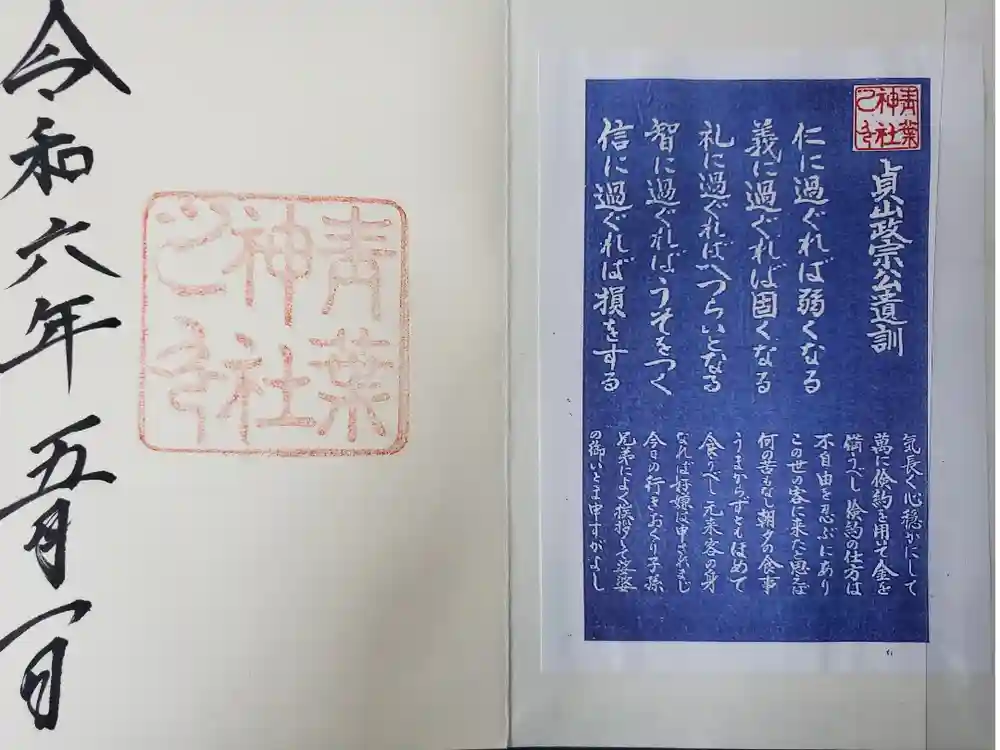 青葉
神社
之印
貞山政宗公遺訓
仁に過ぐれば弱くなる
義に過ぐれば固くなる
礼に過ぐればへつらいとなる
智に過ぐればうそをつく
信に過ぐれば損をする
気長く心穏かにして
萬に倹約を用いて金を
備うべし倹約の仕方は
不自由を忍ぶにあり
この世の客に来たと思えば
何の苦もなし朝夕の食事
うまからずともほめて
食うべし元来客の身
なれば好嫌は申されまじ
今日の行きおくり子孫
兄弟によく挨拶して娑婆
の御いとま申すがよし
青葉
神社
之印
令和六年五月一日